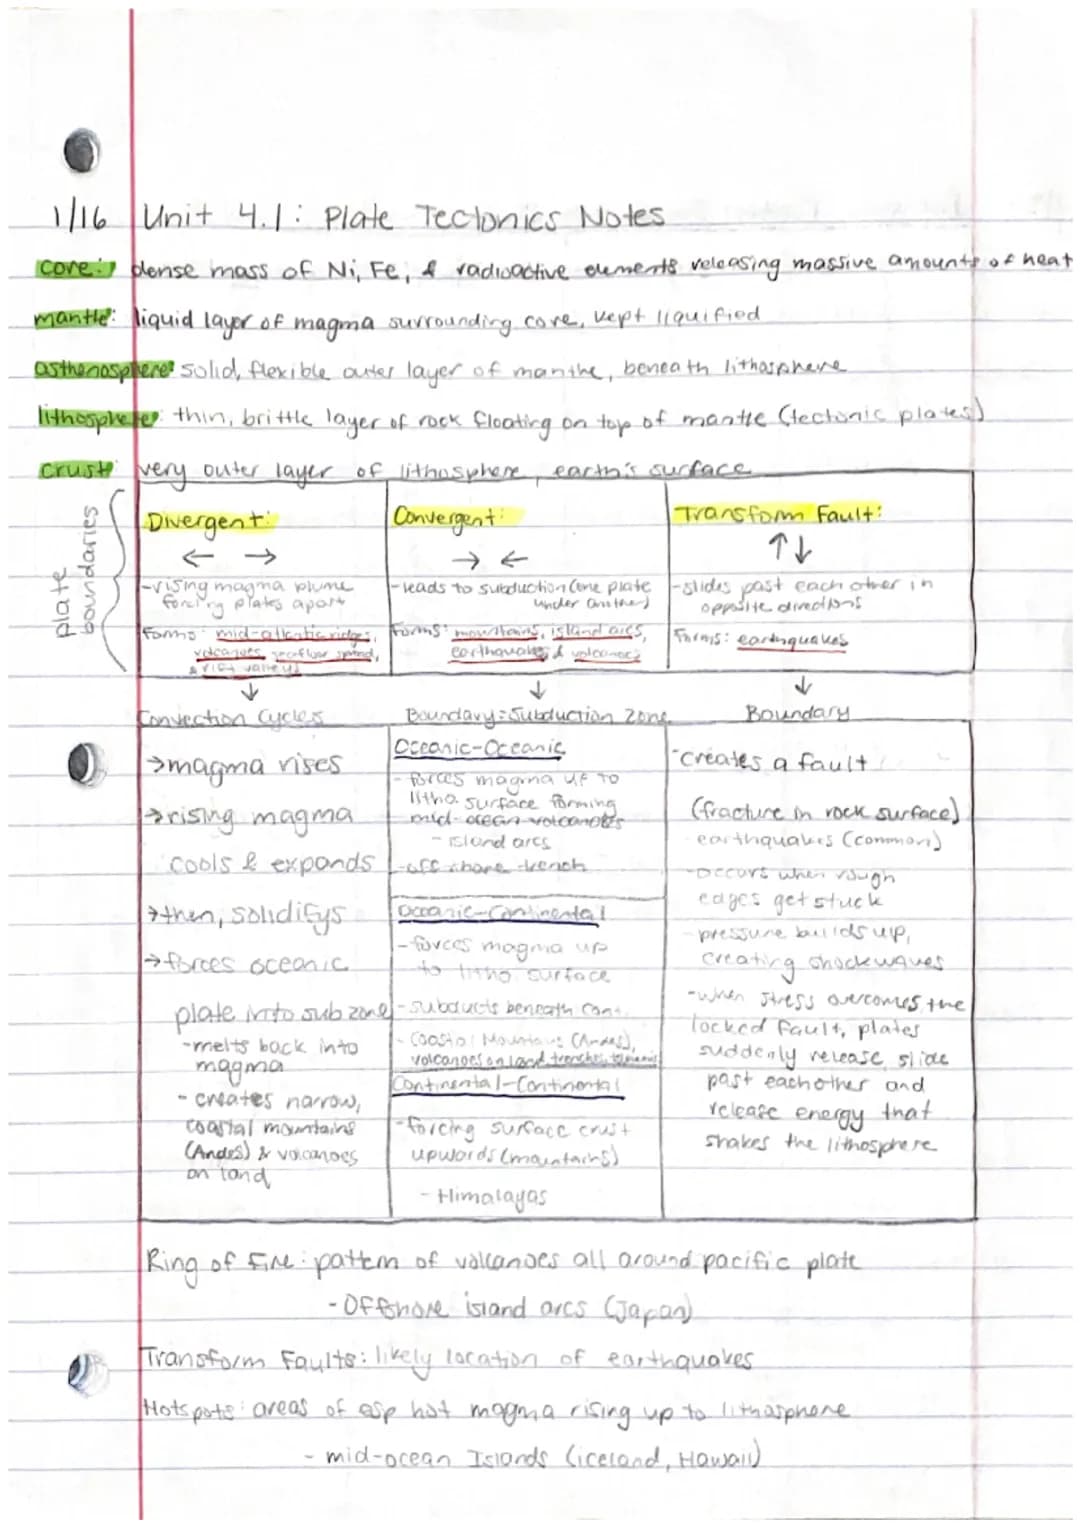 1/16 Unit 4.1: Plate Tectonics Notes
core: dense mass of Ni, Fe, & radioactive elements releasing massive amounts of heat
mantle: liquid layer of magma surrounding core, kept liquified
asthenosphere: solid, flexible outer layer of mantle, beneath lithosphere
lithosphere: thin, brittle layer of rock floating on top of mantle (tectonic plates)
crust: very outer layer of lithosphere, earth's surface
Plate boundaries
Divergent:
← →
-rising magma plume
forcing plates apart
Forms: mid-atlantic ridges,
volcanoes, seafloor spread,
& rift valleys
↓
Convergent:
→ ←
-leads to subduction (one plate
under another)
Forms: mountains, island arcs,
earthquakes & volcanoes
↓
Transform Fault:
↑↓
-slides past each other in
opposite directions
Forms: earthquakes
↓
Convection Cycles
→magma rises
→rising magma
cools & expands
→then, solidifys
→forces oceanic
plate into sub zone
-melts back into
magma
- creates narrow,
coastal mountains
(Andes) & volcanoes
on land
Boundary: Subduction Zone
Oceanic-Oceanic
- forces magma up to
litho. surface forming
mid-ocean volcanoes
- island arcs
-off shore trench
Oceanic-Continental
-forces magma up
to litho surface
-subducts beneath cont.
- Coastal Mountains (Andes),
volcanoes on land, trenches,
Continental-Continental
-forcing surface crust
upwards (mountains)
- Himalayas
Boundary
-creates a fault
(fracture in rock surface)
- earthquakes (common)
-occurs when rough
edges get stuck
- pressure builds up,
creating shockwaves
-when stress overcomes the
locked fault, plates
suddenly release, slide
past eachother and
release energy that
shakes the lithosphere
Ring of Fire: pattern of volcanoes all around pacific plate
-Offshore island arcs (Japan)
Transform Faults: likely location of earthquakes
Hotspots: areas of esp hot magma rising up to lithosphere
- mid-ocean Islands (iceland, Hawaii)